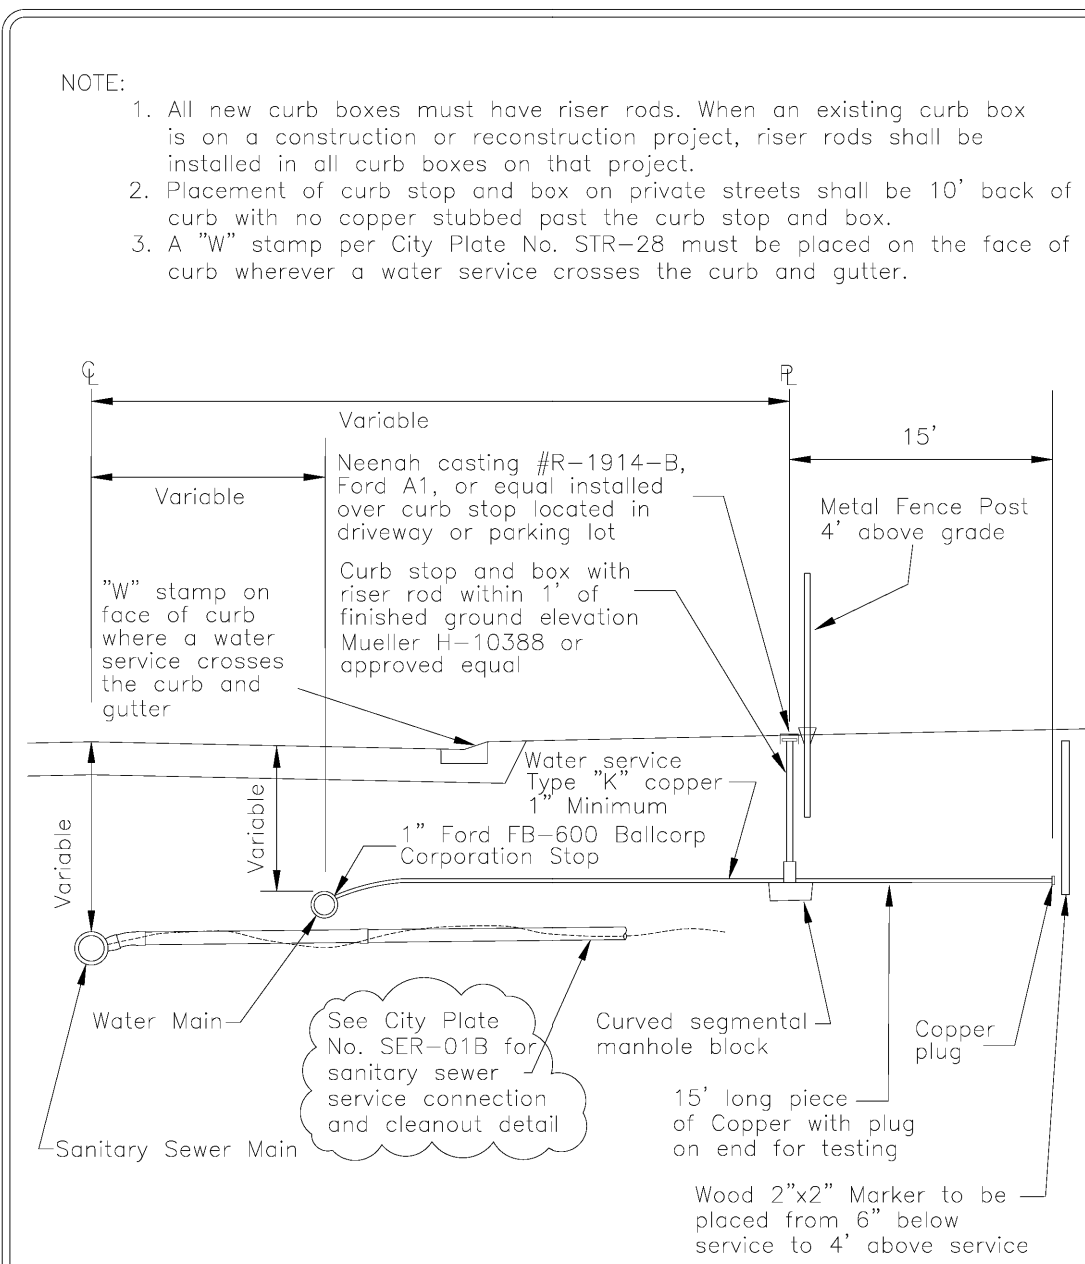 NOTE:
1. All new curb boxes must have riser rods. When an existing curb box
is on a construction or reconstruction project, riser rods shall be
installed in all curb boxes on that project.
2. Placement of curb stop and box on private streets shall be 10' back of
curb with no copper stubbed past the curb stop and box.
3. A "W" stamp per City Plate No. STR-28 must be placed on the face of
curb wherever a water service crosses the curb and gutter.
CL
PL
Variable
15'
Variable
Neenah casting #R-1914-B,
Ford A1, or equal installed
over curb stop located in
driveway or parking lot
Metal Fence Post
4' above grade
Curb stop and box with
riser rod within 1' of
finished ground elevation
Mueller H-10388 or
approved equal
"W" stamp on
face of curb
where a water
service crosses
the curb and
gutter
Water service
Type "K" copper
1" Minimum
Variable
Variable
1" Ford FB-600 Ballcorp
Corporation Stop
Water Main
See City Plate
No. SER-01B for
sanitary sewer
service connection
and cleanout detail
Curved segmental
manhole block
Copper
plug
15' long piece
of Copper with plug
on end for testing
Sanitary Sewer Main
Wood 2"x2" Marker to be
placed from 6" below
service to 4' above service